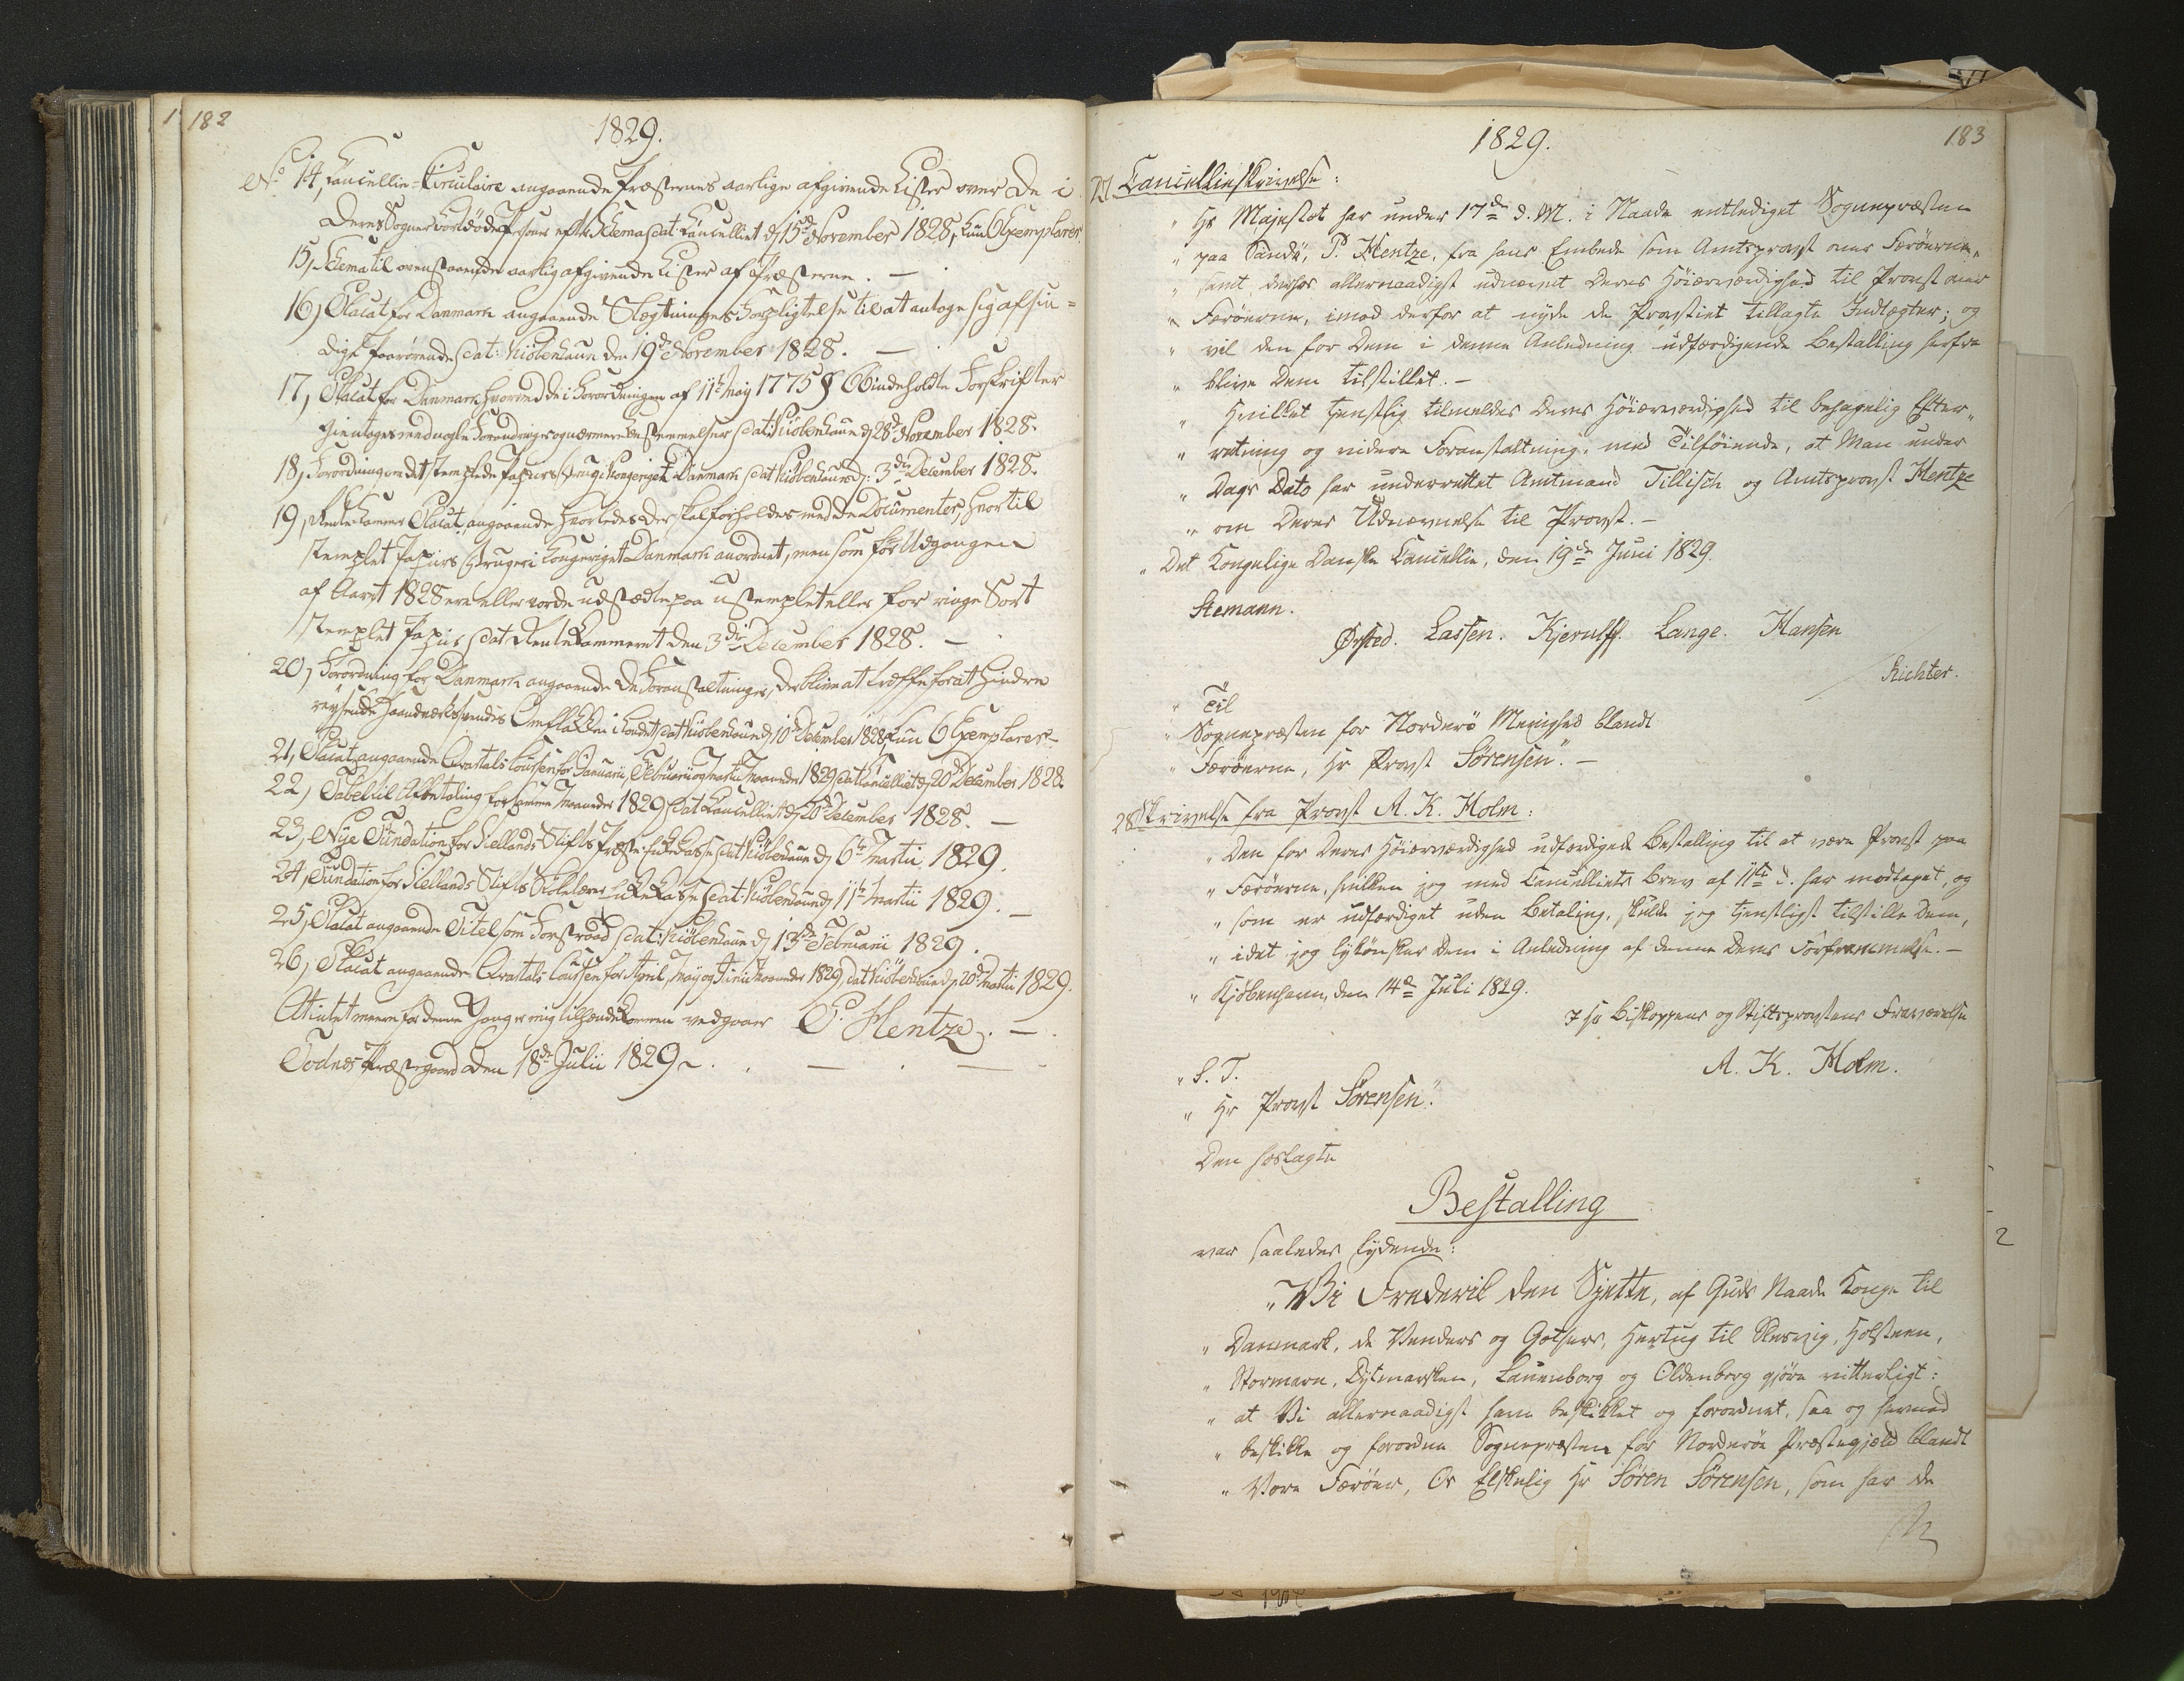 182
1829.
No 14, Cancellie-Circulaire angaaende Præsternes aarlige afgivende Lister over De i
Deres Sogner bortdøde Personer efter Schema dat: Cancelliet d 15de November 1828, kun 6 Exemplarer.
15, Schema til ovenstaaende aarlig afgivende Lister af Præsterne. —
16, Placat for Danmark angaaende Slægtninges Forpligtelse til at antage sig afsin-
dige Paarørende, dat: Kiøbenhavn den 19de November 1828. —
17, Placat for Danmark hvorved de i Forordningen af 11te May 1775 § 6 indeholdte Forskrifter
gientages med nogle Forandringer og nærmere Bestemmelser, dat: Kiøbenhavn d 28de November 1828.
18, Forordning om det stemplede Papiirs Brug i Kongeriget Danmark, dat: Kiøbenhavn d: 3die December 1828.
19, Rentekammer Placat, angaaende hvorledes der skal forholdes med de Documenter, hvortil
stemplet Papiirs Brug er i Kongeriget Danmark anordnet, men som før Udgangen
af Aaret 1828 ere eller vorde udstædte paa ustemplet eller for ringe Sort
stemplet Papiir, dat: Rentekammeret den 3die December 1828. —
20, Forordning for Danmark angaaende de Foranstaltninger, der blive at træffe for at hindre
reysende Haandværkssvendes Omflakken i Landet, dat: Kiøbenhavn d 10de December 1828, kun 6 Exemplarer
21, Placat, angaaende Qvartals Coursen for Januarii, Februarii og Martii Maaneder 1829, dat: Cancelliet d 20de December 1828.
22, Tabel til Afbetaling for samme Maaneder 1829, dat: Cancelliet d 20de December 1828. —
23, Nye Fundation for Siellands Stifts Præste-Enkekasse, dat: Kiøbenhavn d 6te Martii 1829.
24, Fundation for Siellands Stifts Skolelærer-Enkekasse, dat: Kiøbenhavn d 11te Martii 1829. —
25, Placat angaaende Titel som Forstraad, dat: Kiøbenhavn d 13de Februarii 1829.
26, Placat angaaende Qvartals Coursen for April, May og Junii Maaneder 1829, dat: Kiøbenhavn d 20de Martii 1829.
At intet meere for denne Gang er mig tilhændekommen vedgaaer P. Hentze. —
Todnes Præstegaard den 18de Julii 1829.
183
1829.
27. Cancellieskrivelse:
„ Hs Majestæt har under 17de d. M. i Naade entlediget Sognepræsten
„ paa Sandø, P. Hentze, fra hans Embede som Amtsprovst over Færøerne,
„ samt derhos allernaadigst udnævnt Deres Høiærværdighed til Provst over
„ Færøerne, imod derfor at nyde de Provstiet tillagte Indtægter; og
„ vil den for Dem i denne Anledning udfærdigende Bestalling herfra
„ blive Dem tilstillet. —
„ Hvilket tjenstlig tilmeldes Deres Høiærværdighed til behagelig Efter-
„ retning og videre Foranstaltning, med Tilføiende, at Man under
„ Dags Dato har underrettet Amtmand Tillisch og Amtsprovst Hentze
„ om Deres Udnævnelse til Provst. —
„ Det Kongelige Danske Cancellie, den 19de Juni 1829.
Stemann.
Ørsted. Lassen. Kjerulff. Lange. Hansen
Richter.
„ Til
„ Sognepræsten for Norderø Menighed blandt
„ Færøerne, Hr Provst Sørensen." —
28 Skrivelse fra Provst A. K. Holm:
„ Den for Deres Høiærværdighed udfærdigede Bestalling til at være Provst paa
„ Færøerne, hvilken jeg med Cancelliets Brev af 11te d. har modtaget, og
„ som er udfærdiget uden Betaling, skulde jeg tjenstligst tilstille Dem,
„ idet jeg lykønsker Dem i Anledning af denne Deres Forfremmelse. —
„ Kjøbenhavn, den 14de Juli 1829.
I Hs Biskoppens og Stiftsprovstens Fraværelse
A. K. Holm.
„ S. T.
„ Hr Provst Sørensen."
Den heslagte
Bestalling
var saaledes lydende:
„ Vi Frederik den Sjette, af Guds Naade Konge til
„ Danmark, de Venders og Gothers, Hertug til Slesvig, Holsteen,
„ Stormarn, Dytmarsken, Lauenborg og Oldenborg gjøre vitterligt:
„ at Vi allernaadigst have beskikket og forordnet, saa og hermed
„ beskikke og forordne Sognepræsten for Norderøe Præstegjeld blandt
„ Vore Færøer, Os Elskelig Hr Søren Sørensen, som har de
2